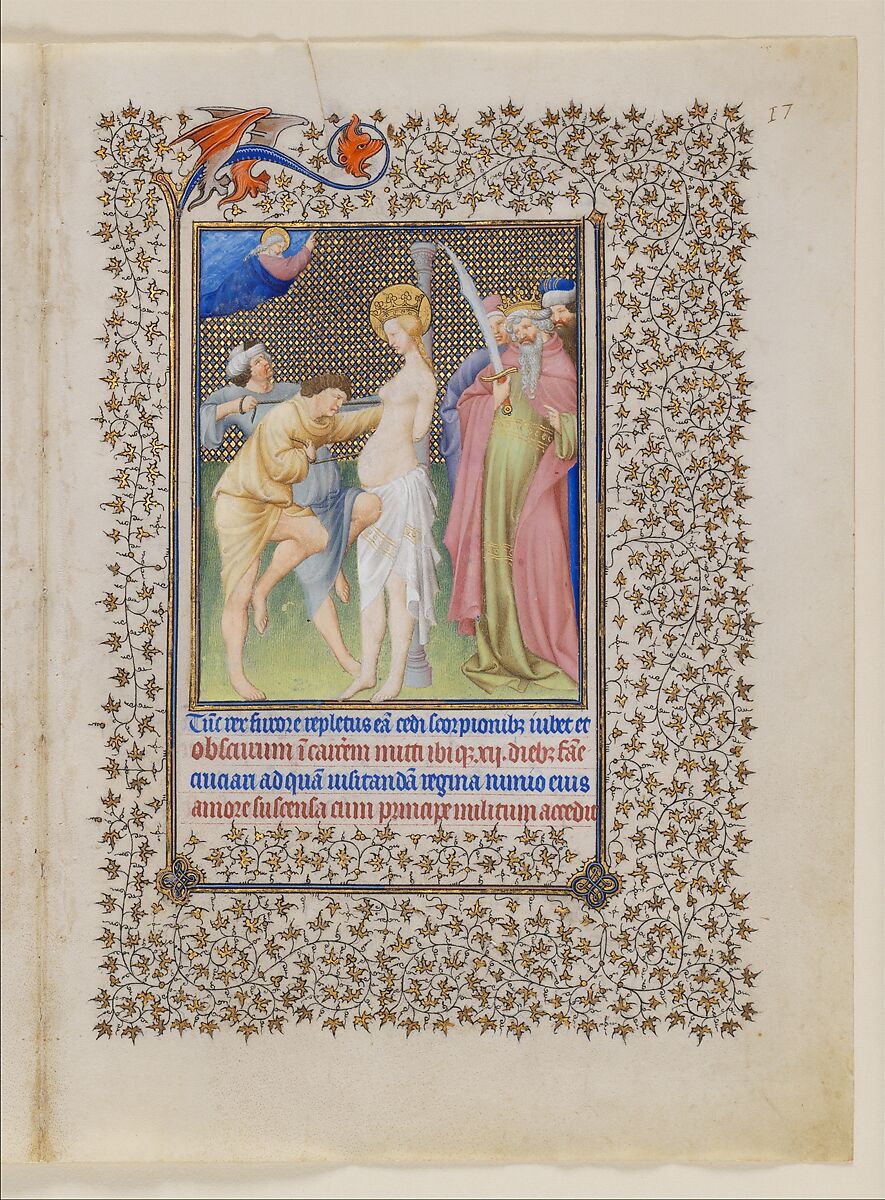 17
Tūc rex furore repletus eā cedi scorpionibꝫ iubet et
obscurum ī carrēm mitti ibi qꝫ xij. diebꝫ fāe
cruciari ad quā uisitandā regina nimio eius
amore suscensa cum principe militum accedit